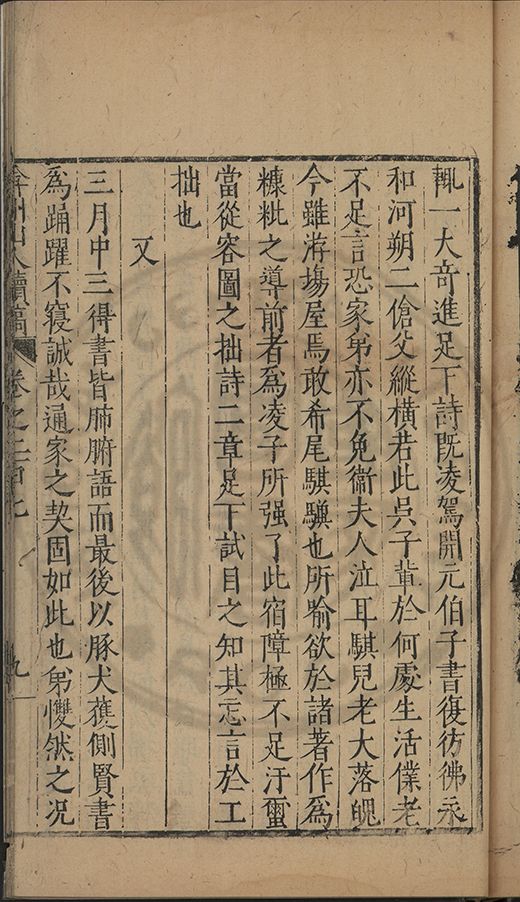 輒一大奇進足下詩既凌駕開元伯子書復彷彿永
和河朔二傖父縱橫若此吳子輩於何處生活僕老
不足言恐家弟亦不免衞夫人泣耳騏兒老大落魄
今雖游塲屋焉敢希尾騏驥也所喻欲於諸著作爲
糠粃之導前者爲凌子所强了此宿障極不足汙蠒
當從容圖之拙詩二章足下試目之知其忘言於工
拙也
又
三月中三得書皆肺腑語而最後以豚犬獲側賢書
爲踊躍不寝誠哉通家之契固如此也弟戄然之况
弇州山人續稿 卷之二百七 九